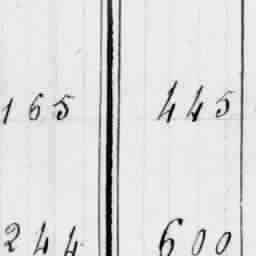 165 445
244 600